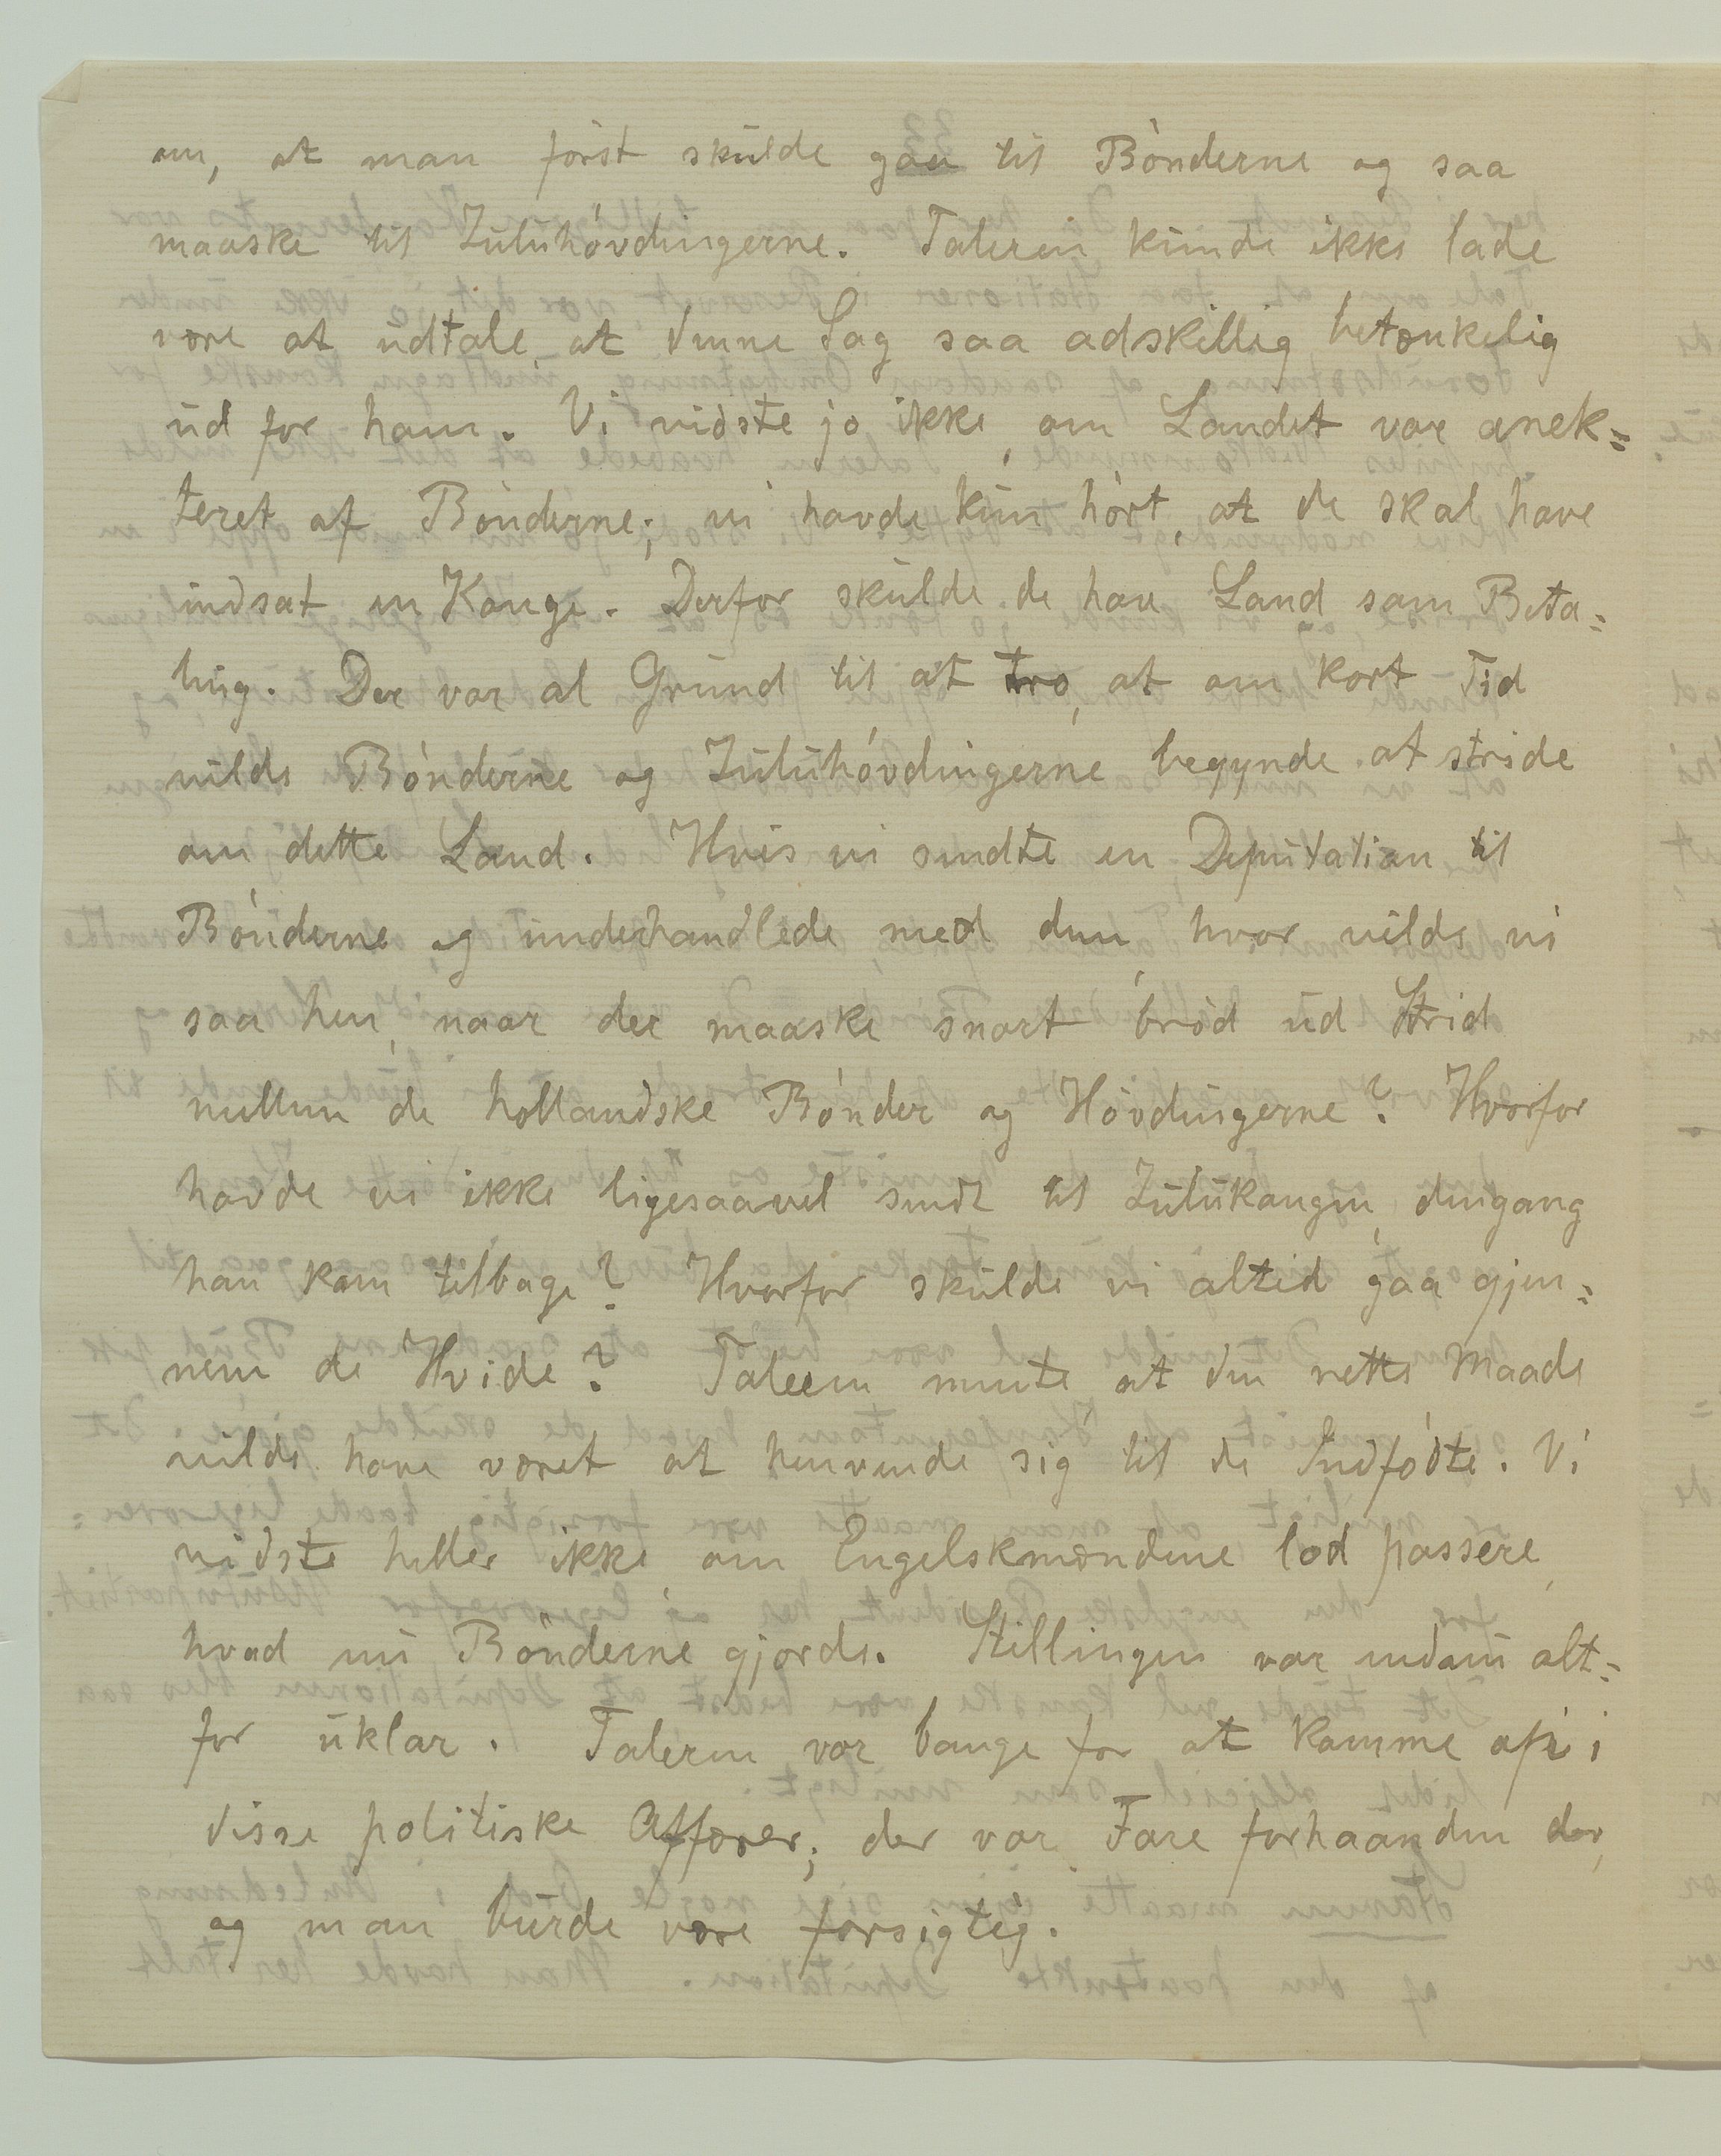 om, at man först skulde gaa til Bönderne og saa
maaske til Zuluhövdingerne. Taleren kunde ikke lade
være at udtale, at denne Sag saa adskillig betænkelig
ud for ham. Vi vidste jo ikke, om Landet var anek=
teret af Bönderne; vi havde kun hört, at de skal have
indsat en Konge. Derfor skulde de have Land som Beta=
ling. Der var al Grund til at tro, at om kort Tid
vilde Bönderne og Zuluhövdingerne begynde at stride
om dette Land. Hvis vi sendte en Deputation til
Bönderne og underhandlede med dem, hvor vilde vi
saa hen, naar der maaske snart bröd ud Strid
mellem de hollandske Bönder og Hövdingerne? Hvorfor
havde vi ikke ligesaavel sendt til Zulukongen, dengang
han kom tilbage? Hvorfor skulde vi altid gaa gjen=
nem de Hvide? Taleren mente, at den rette Maade
vilde have været at henvende sig til de Indfödte. Vi
vidste heller ikke, om Engelskmændene lod passere,
hvad nu Bönderne gjorde. Stillingen var endnu alt=
for uklar. Taleren var bange for at komme op i
disse politiske Affærer; der var Fare forhaanden der,
og man burde være forsigtig.